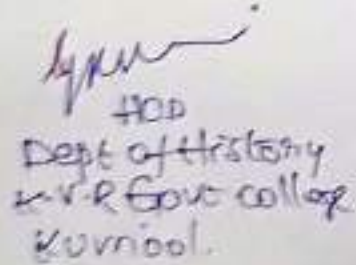 HOD
Dept of History
K.V.R Govt college
Kurnool.